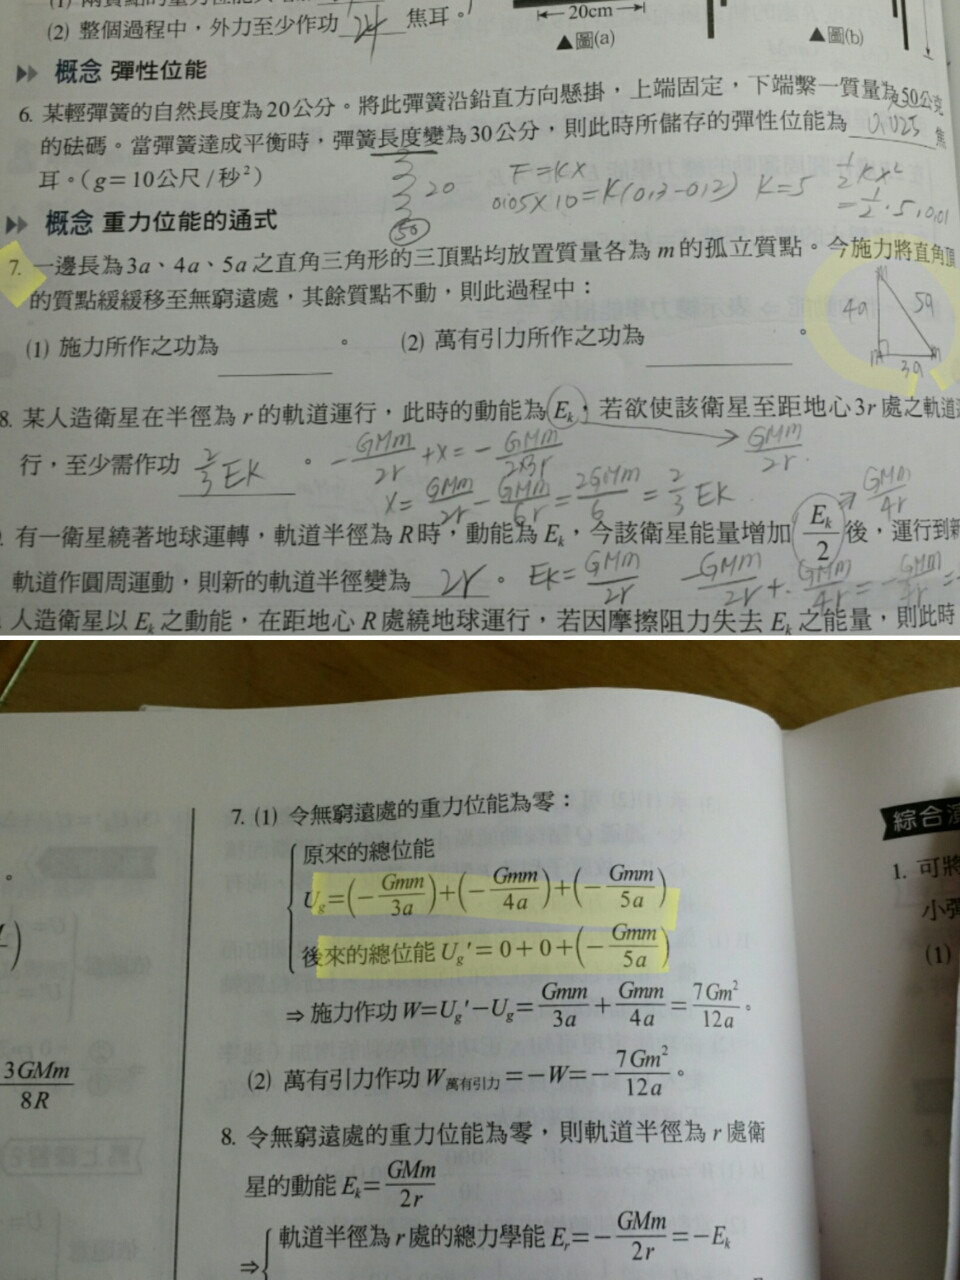 (2) 整個過程中,外力至少作功 24 焦耳。
20cm
▲圖(a)
▲圖(b)
概念 彈性位能
6. 某輕彈簧的自然長度為20公分。將此彈簧沿鉛直方向懸掛,上端固定,下端繫一質量為50公克
的砝碼。當彈簧達成平衡時,彈簧長度變為30公分,則此時所儲存的彈性位能為 0.025 焦
耳。(g=10公尺/秒²)
20
50
F=KX
0.05×10=K(0.3-0.2) K=5
1/2 KX²
=1/2·5·0.01
概念 重力位能的通式
7. 一邊長為3a、4a、5a之直角三角形的三頂點均放置質量各為m的孤立質點。今施力將直角頂
的質點緩緩移至無窮遠處,其餘質點不動,則此過程中:
(1) 施力所作之功為 。 (2) 萬有引力所作之功為 。
4a
5a
3a
8. 某人造衛星在半徑為r的軌道運行,此時的動能為Ek,若欲使該衛星至距地心3r處之軌道運
GMm/2r
行,至少需作功 2/3 EK 。 -GMm/2r +X=-GMm/2×3r
X=GMm/2r-GMm/6r=2GMm/6=2/3 EK
GMm/4r
有一衛星繞著地球運轉,軌道半徑為R時,動能為Ek,今該衛星能量增加 Ek/2 後,運行到新
軌道作圓周運動,則新的軌道半徑變為 2r 。 EK=GMm/2r -GMm/2r+GMm/4r=-GMm/4r=-
人造衛星以Ek之動能,在距地心R處繞地球運行,若因摩擦阻力失去Ek之能量,則此時
7. (1) 令無窮遠處的重力位能為零:
原來的總位能
Ug=(-Gmm/3a)+(-Gmm/4a)+(-Gmm/5a)
後來的總位能Ug'=0+0+(-Gmm/5a)
⇒施力作功W=Ug'-Ug=Gmm/3a+Gmm/4a=7Gm²/12a。
(2) 萬有引力作功W萬有引力=-W=-7Gm²/12a。
8. 令無窮遠處的重力位能為零,則軌道半徑為r處衛
星的動能Ek=GMm/2r
⇒ 軌道半徑為r處的總力學能Er=-GMm/2r=-Ek
3GMm/8R
綜合演
1. 可將
小彈
(1)